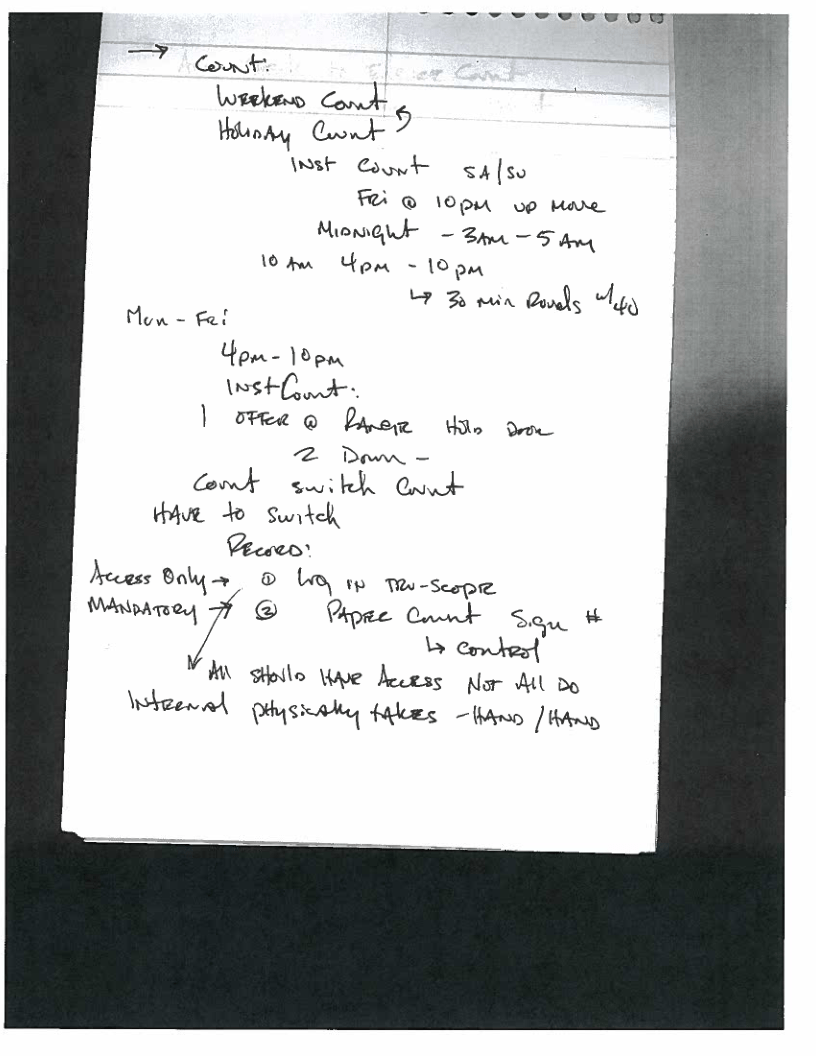 → Count:
WEEKEND Count
HOLIDAY Count
INST Count SA/SU
FRi @ 10pm up Move
MIDNIGHT - 3AM - 5 AM
10 AM 4pm - 10 pm
↳ 30 Min Rounds w/40
Mon - FRi
4pm - 10pm
INST Count:
1 OFFCR @ Hold Door
2 Down -
Count switch Count
HAVE to Switch
RECORD:
Access Only → ① Log IN TRU-SCOPE
MANDATORY → ② PAPER Count Sign #
↳ Control
All SHOUlD HAVE Access NOT All DO
INTERNAl PHYSICAlly tAkES - HAND / HAND